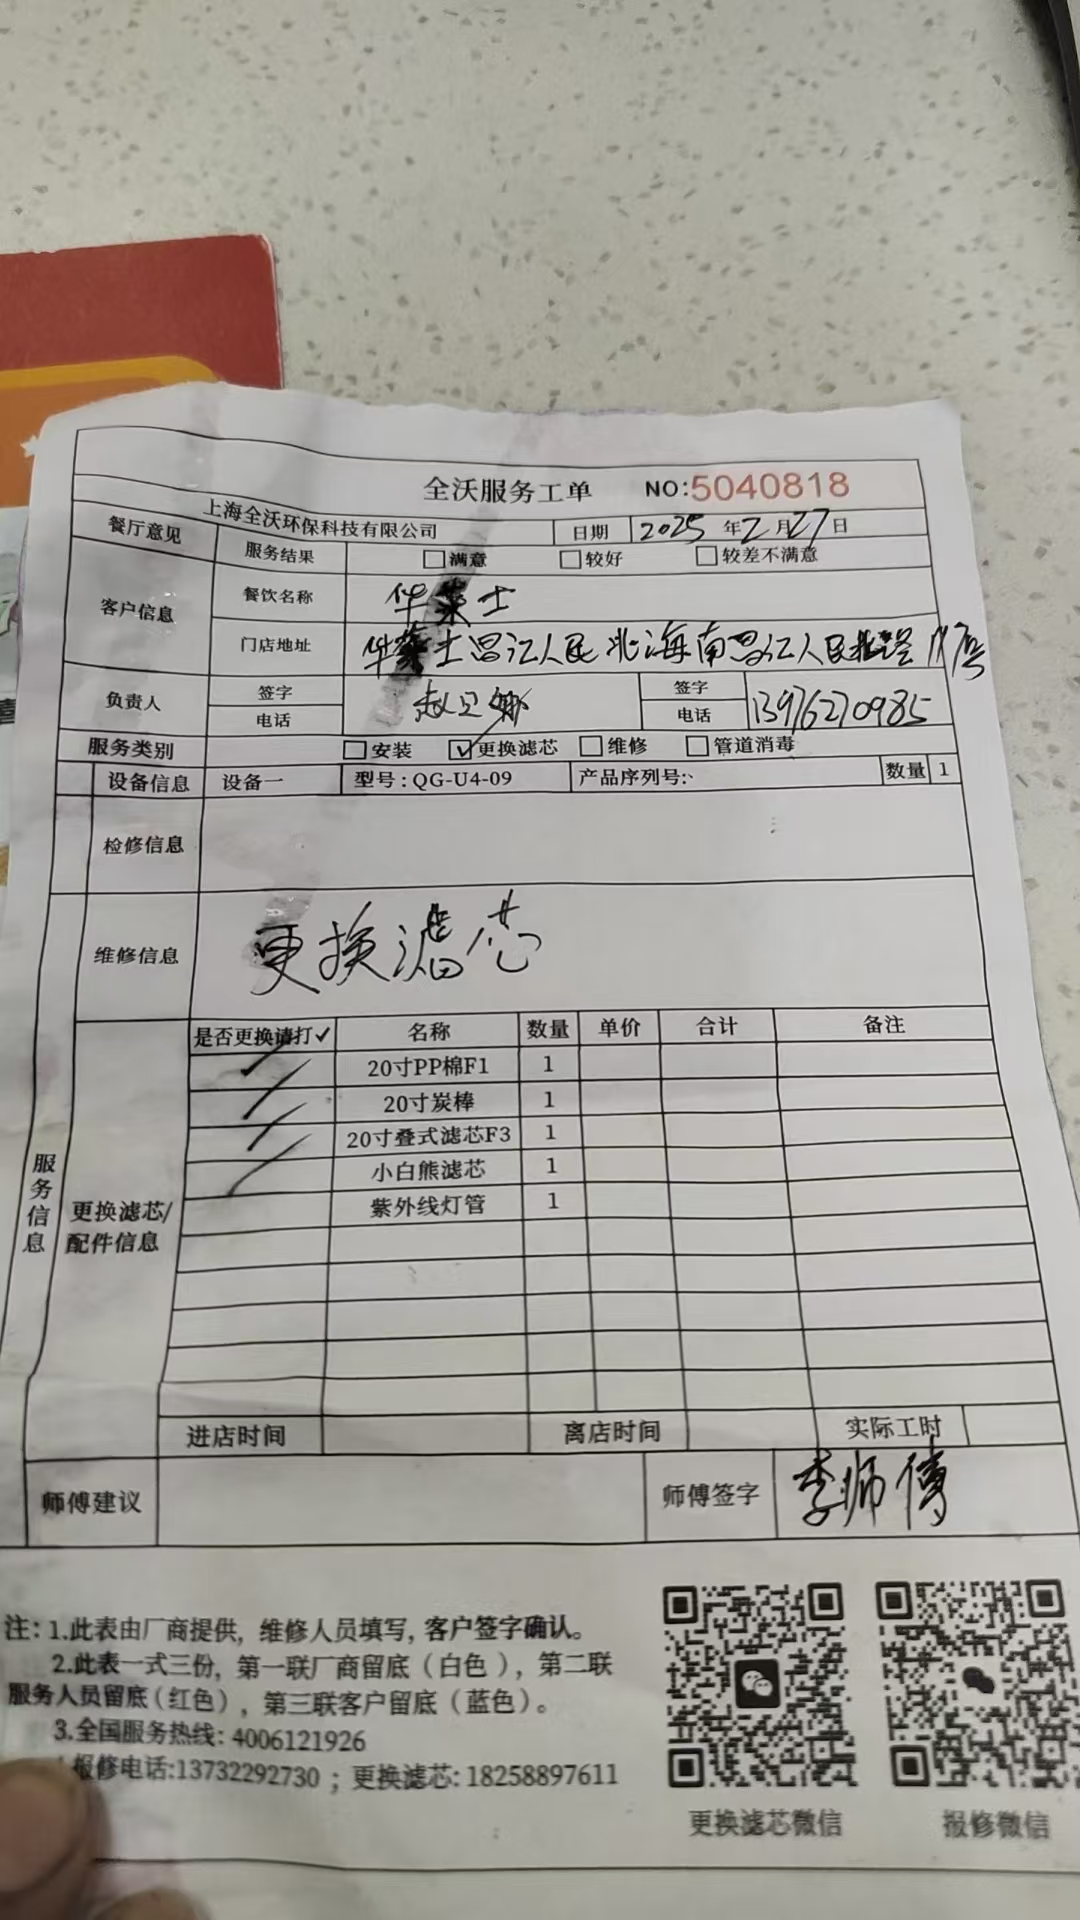 全沃服务工单 NO:5040818
上海全沃环保科技有限公司 日期 2025年2月27日
餐厅意见 服务结果 满意 较好 较差不满意
客户信息 餐饮名称 华莱士
门店地址 华莱士昌江人民北海南昌江人民北路店
负责人 签字 赵卫娜 签字
电话 电话 13976270985
服务类别 安装 ✓更换滤芯 维修 管道消毒
设备信息 设备一 型号:QG-U4-09 产品序列号: 数量 1
检修信息
维修信息 更换滤芯
服务信息
更换滤芯/配件信息
是否更换请打✓ 名称 数量 单价 合计 备注
✓ 20寸PP棉F1 1
✓ 20寸炭棒 1
✓ 20寸叠式滤芯F3 1
✓ 小白熊滤芯 1
紫外线灯管 1
进店时间 离店时间 实际工时
师傅建议 师傅签字 李师傅
注:1.此表由厂商提供,维修人员填写,客户签字确认。
2.此表一式三份,第一联厂商留底(白色),第二联
服务人员留底(红色),第三联客户留底(蓝色)。
3.全国服务热线:4006121926
报修电话:13732292730;更换滤芯:18258897611
更换滤芯微信 报修微信